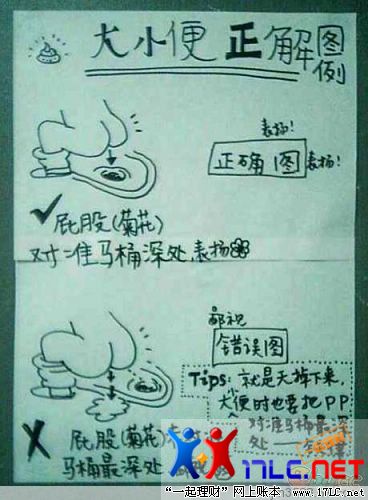 大小便正解图例
表扬!
正确图 表扬!
屁股(菊花)
对准马桶深处,表扬
鄙视
错误图
Tips: 就是天掉下来,
大便时也要把PP
对准马桶最深
处
屁股(菊花)
马桶最深处
17LC.net
“一起理财” 网上账本 www.17LC.net